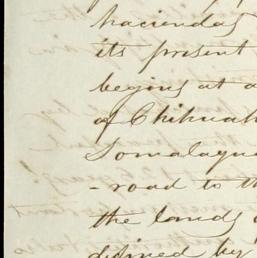 haciendas
its present
begins at a
of Chihuah
Somalaque
- road to th
the lands
defined by